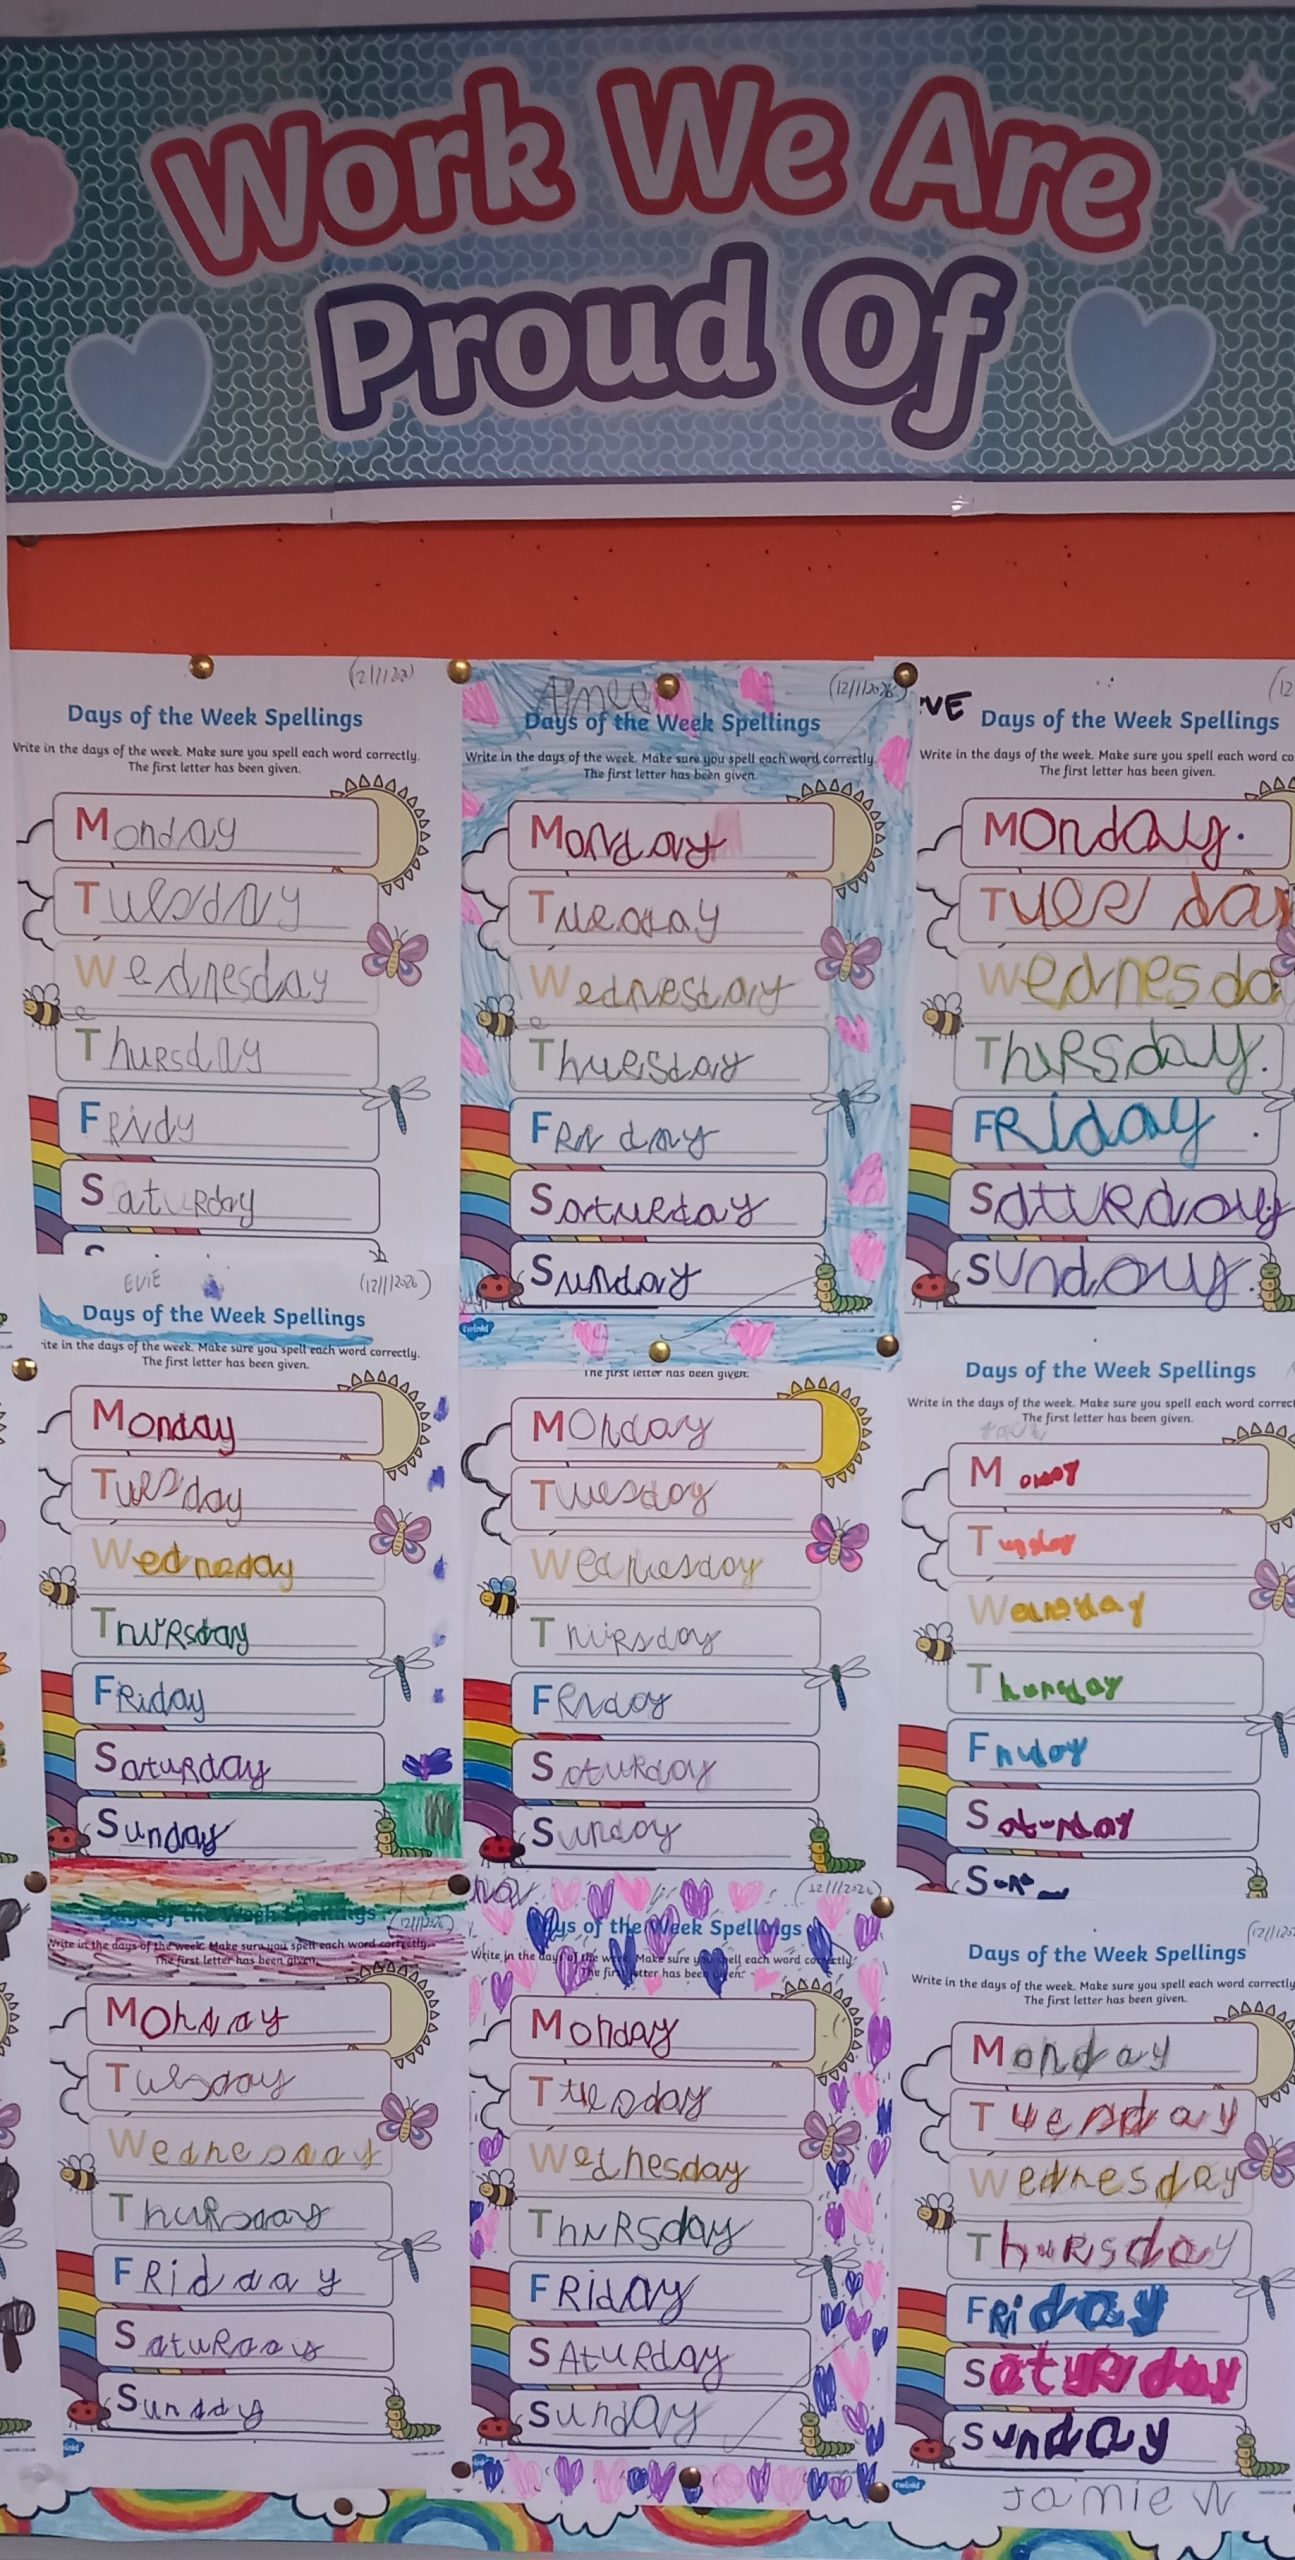 Work We Are
Proud Of
(12/1/202
Days of the Week Spellings
Write in the days of the week. Make sure you spell each word correctly.
The first letter has been given.
Monday
Tuesday
Wednesday
Thursday
Fridy
Saturday
Aimee
(12/1/2026)
Days of the Week Spellings
Write in the days of the week. Make sure you spell each word correctly.
The first letter has been given.
Monday
Tuesday
Wednesday
Thuesday
Friday
Saturday
Sunday
twinkl
VE
(12
Days of the Week Spellings
Write in the days of the week. Make sure you spell each word co
The first letter has been given.
Monday.
Tuesday
Wednesda
Thursday.
Friday.
Saturday
Sunday.
EVIE
(12/1/2026)
Days of the Week Spellings
ite in the days of the week. Make sure you spell each word correctly.
The first letter has been given.
Monday
Tuesday
Wednesday
Thursday
Friday
Saturday
Sunday
The first letter has been given.
Monday
Tuesday
Wednesday
Thursday
Friday
Saturday
Sunday
Days of the Week Spellings
Write in the days of the week. Make sure you spell each word correct
The first letter has been given.
Friday
Saturday
(12/1/2026)
Days of the Week Spellings
Write in the days of the week. Make sure you spell each word correctly.
The first letter has been given.
Monday
Tuesday
Wednesday
Thursday
Friday
Saturday
Sunday
(12/1/2026)
Days of the Week Spellings
Write in the days of the week. Make sure you spell each word correctly.
The first letter has been given.
Monday
Tuesday
Wednesday
Thursday
Friday
Saturday
Sunday
(12/1/202
Days of the Week Spellings
Write in the days of the week. Make sure you spell each word correctly
The first letter has been given.
Monday
Tuesday
Wednesday
Thursday
Friday
Saturday
Sunday
twinkl
Jamie W